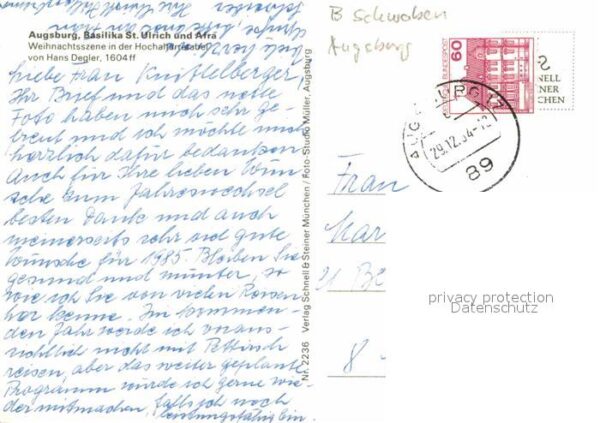 B Schwaben
Augsburg
Augsburg, Basilika St. Ulrich und Afra
Weihnachtsszene in der Hochaltartafel
von Hans Degler, 1604 ff
Liebe Frau Knittelberger
Ihr Brief und das nette
Foto haben mich sehr ge-
freut und ich möchte mich
herzlich dafür bedanken
Auch für Ihre lieben Wün-
sche zum Jahreswechsel
besten Dank und auch
meinerseits sehr viel gute
Wünsche für 1985. Bleiben Sie
gesund und munter, so
wie ich Sie von vielen Reisen
her kenne. Im kommen-
den Jahr werde ich voraus-
sichtlich nicht mit Pettirsch
reisen, aber das weiter geplante
Programm würde ich gerne wie-
der mitmachen, falls ich noch
leistungsfähig bin.
Nr. 2236 Verlag Schnell & Steiner München / Foto-Studio Müller, Augsburg
60
DEUTSCHE BUNDESPOST
S
NELL
INER
CHEN
AUGSBURG 17
29.12.84-12
89
Frau
Kar
21 Be
8 -
privacy protection
Datenschutz